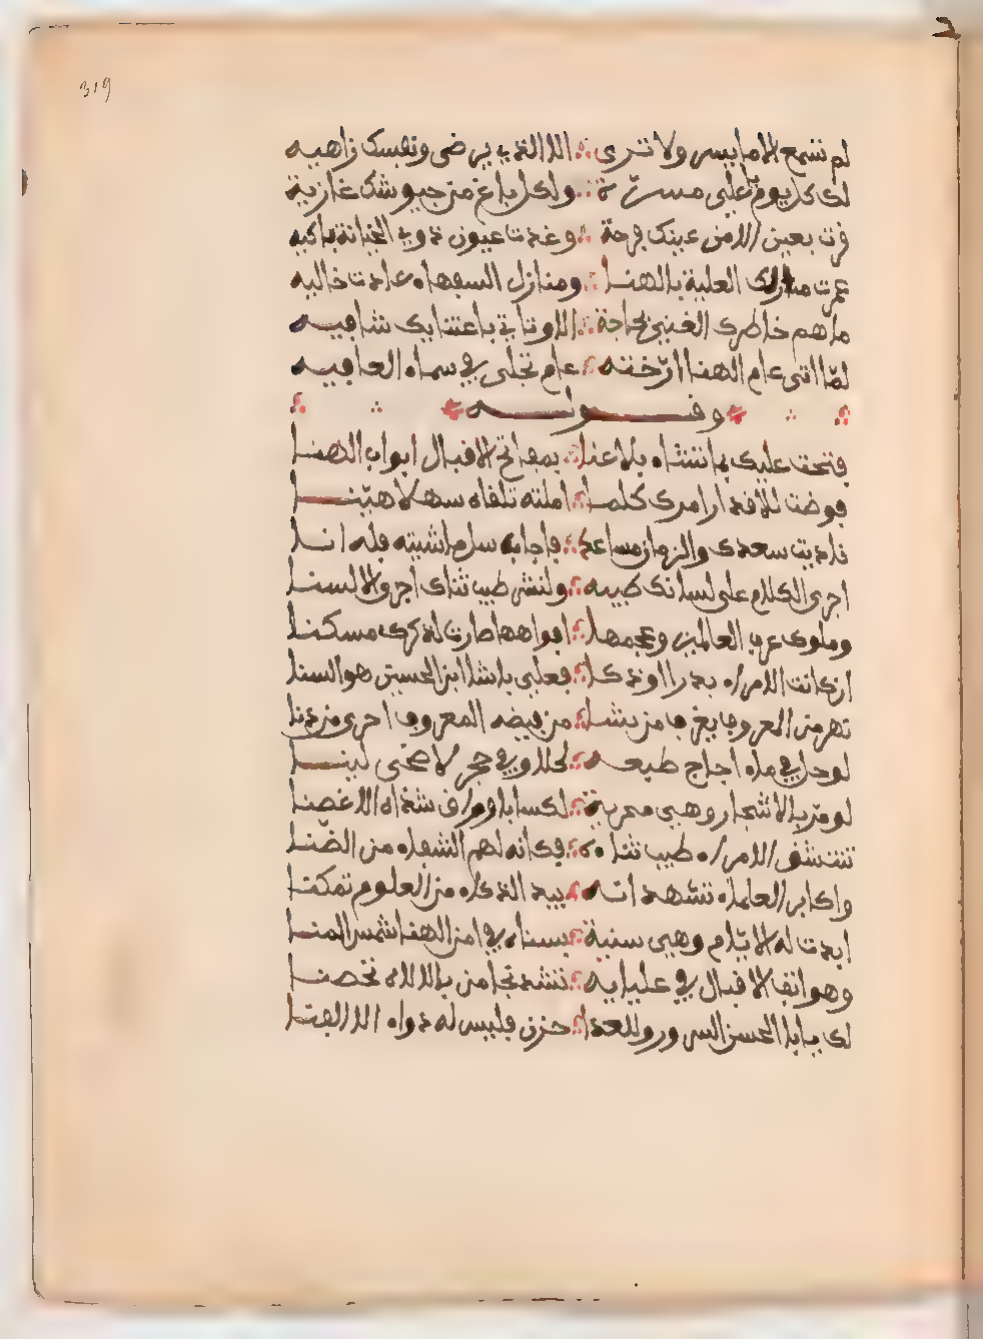 319
لم تسمع الا ما يسر ولا ترى ∴ الا الذي يرضى ونفسك زاهيه
لك كل يوم على مسرّة ∴ ولكل باغ من جيوشك غازية
قرت بعين الامن عينك فرحة ∴ وغدت عيون ذوي الخيانة باكيه
عمرت منازلك العلية بالهنا ∴ ومنازل السفهاء عادت خاليه
ما هم خاطرك الغني بحاجة ∴ الا وتاتي باعتنايك شافيه
لمّا اتى عام الهنا ارّخته ∴ عام تجلى في سماء العافيه
وقوله
فتحت عليك بما تشاء بلا عنا ∴ بمفاتح الاقبال ابواب الهنا
فوضت للاقدار امرك كلما ∴ املته تلقاه سهلا هيّنا
ناديت سعدك والزمان مساعد ∴ فاجابه سل ما شيته فله انا
اجرى الكلام على لسانك طيبه ∴ ولنشر طيب ثناك اجرى الالسنا
وملوك عرب العالمين وعجمها ∴ افواهها صارت لذكرك مسكنا
ان كانت الامراء بدرا او ذكا ∴ فعلي باشا ابن الحسين هو السنا
نهر من المعروف يغرف من يشا ∴ من فيضه المعروف احرى من دنا
لو حل في ماء اجاج طبعه ∴ لحلا وفي حجر لاضحى لينا
لو مرّ بالاشجار وهي معرية ∴ لكساب اوراق شذاه الاغصنا
تستشفى الامراء طيب ثناءه ∴ فكانه لهم الشفاء من الضّنا
واكابر العلماء تشهد انه ∴ بيد الذكاء من العلوم تمكنا
ابدت له الايّام وهي سنية ∴ بسناء في امن الهنا شمس المنا
وهواتف الاقبال في عليايه ∴ تشد نجا من بالالاه تحصنا
لك يابا الحسن السرور وللعدا ∴ حزن فليس له دواء الا الفنا